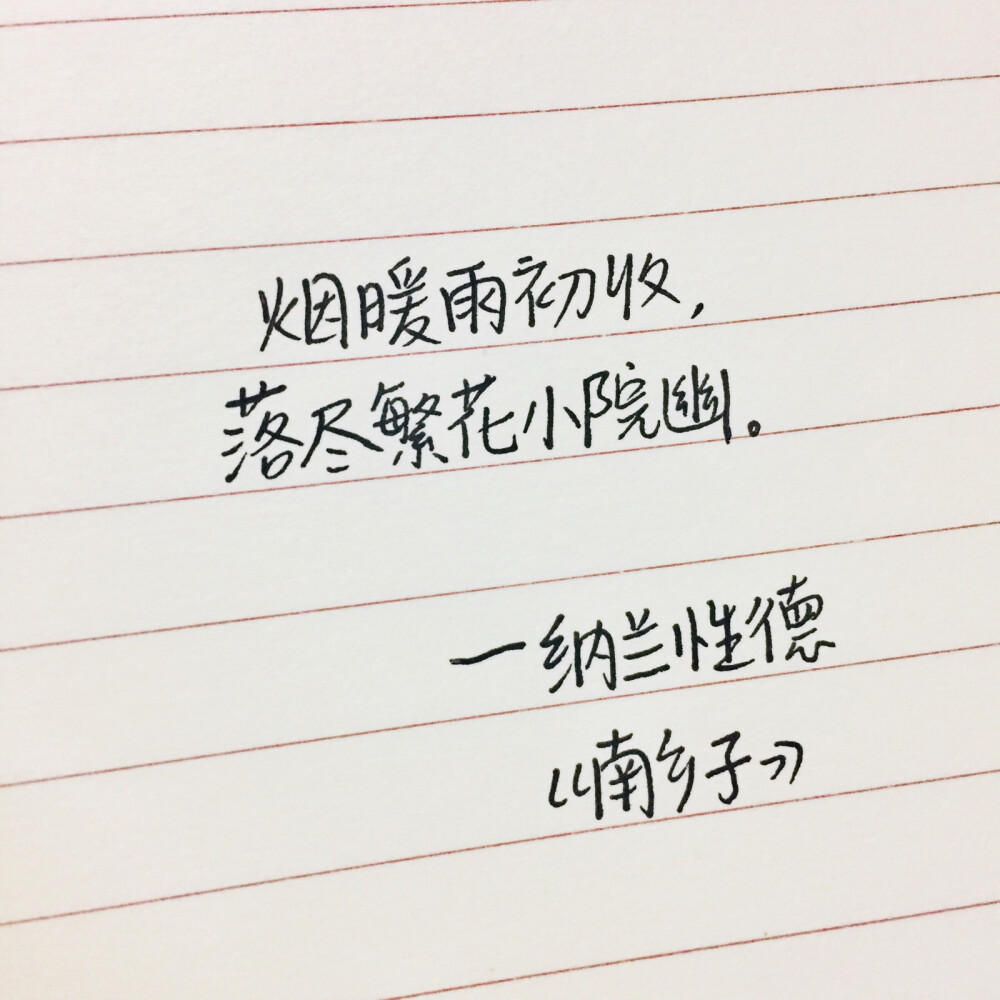 烟暖雨初收,
落尽繁花小院幽。
一纳兰性德
《喃乡子》